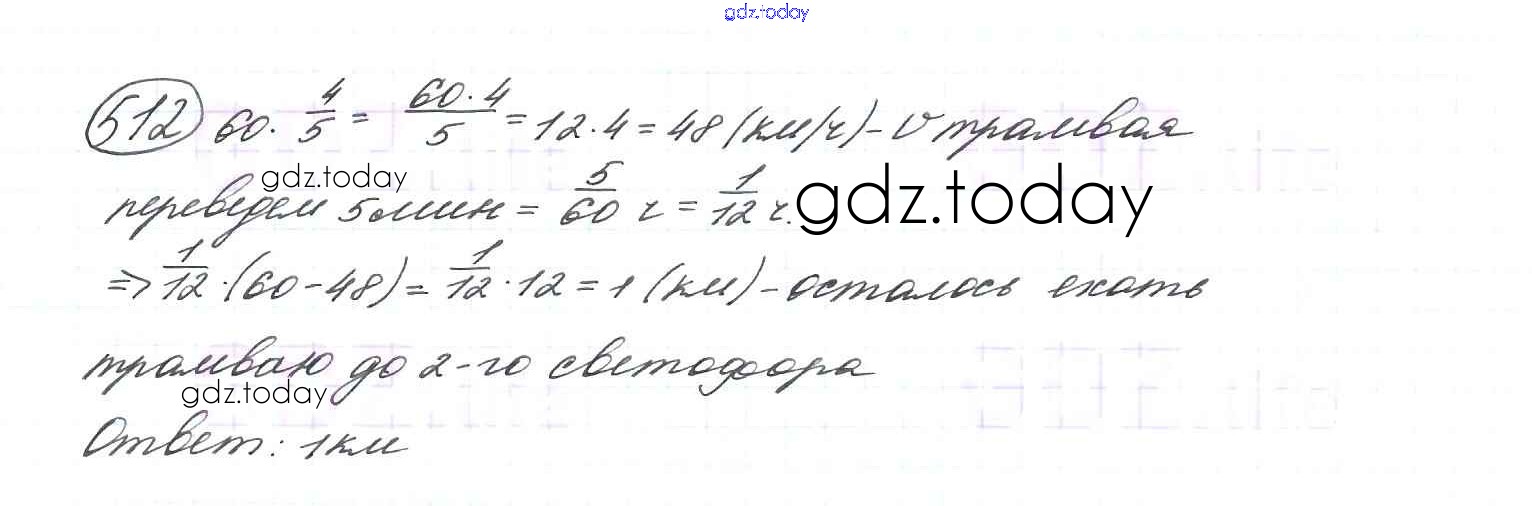 gdz.today
512 60 · 4/5 = 60·4/5 = 12·4 = 48 (км/ч) - V трамвая
gdz.today
переведем 5 мин = 5/60 ч = 1/12 ч. gdz.today
=> 1/12 · (60 - 48) = 1/12 · 12 = 1 (км) - осталось ехать
трамваю до 2-го светофора
gdz.today
Ответ: 1 км